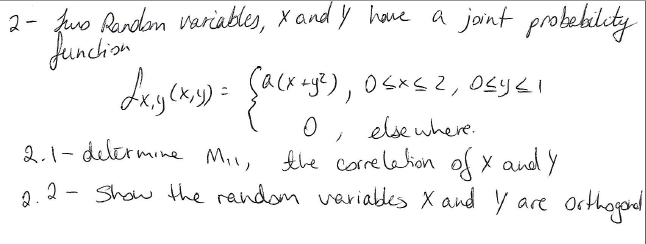 2- Two Random variables, X and Y have a joint probability
function
fx,y(x,y) = { a(x+y²), 0≤x≤2, 0≤y≤1
0, elsewhere.
2.1- determine M11, the correlation of X and Y
2.2- Show the random variables X and Y are orthogonal